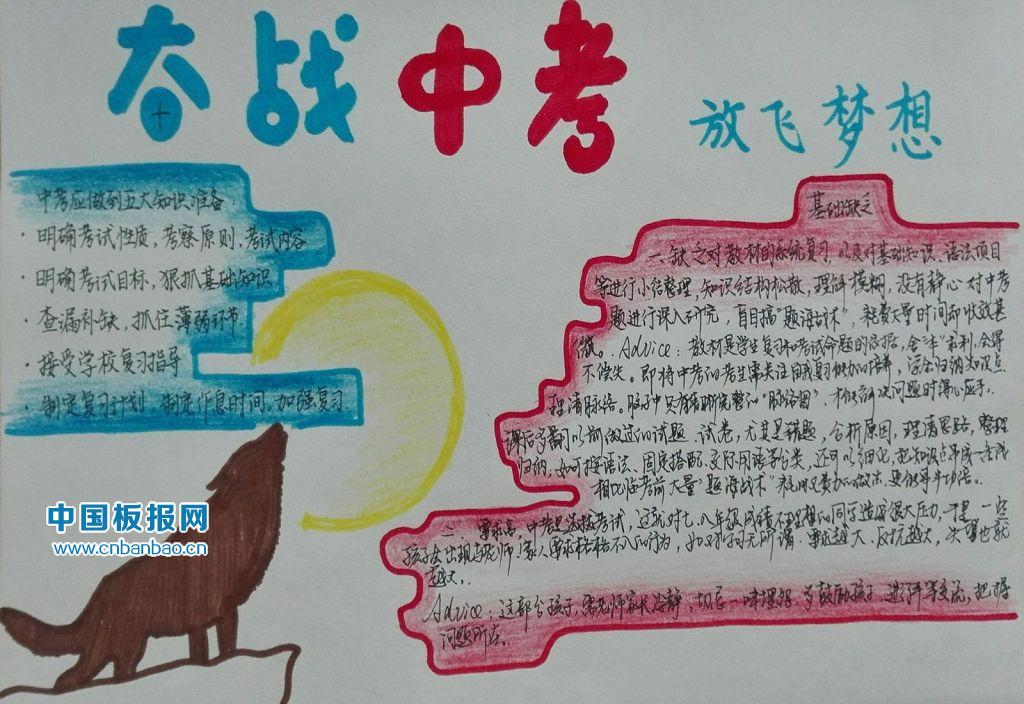 奋战中考
放飞梦想
中考应做到五大知识准备
·明确考试性质、考察原则、考试内容
·明确考试目标、狠抓基础知识
·查漏补缺、抓住薄弱环节
·接受学校复习指导
·制定复习计划、制定作息时间、加强复习
基础缺乏
一、缺乏对教材的系统复习、以及对基础知识、语法项目
等进行小结整理，知识结构松散，理解模糊，没有静心对中考
题进行深入研究，盲目搞"题海战术"，耗费大量时间却收效甚
微。Advice：教材是学生复习和考试命题的依据，舍"本"求利，会得
不偿失。即将中考的考生需关注自我复习能力的培养，学会归纳知识点
理清脉络。脑中只有清晰完整的"脉络图"，才能在解决问题时得心应手。
课后多翻以前做过的试题、试卷，尤其是错题，分析原因，理清思路，整理
归纳，如可按语法、固定搭配、交际用语等分类，还可以细化，把知识点串成一条线
相比临考前大量"题海战术"
二、要求高，中考是选拔考试，这就对七、八年级成绩不理想的同学造成很大压力，于是，一些
孩子会出现与老师、家人要求格格不入的行为，如对学习无所谓，要求越大，反抗越大，
越大。
Advice：这部分孩子，需老师家长冷静，切忌一味埋怨，多鼓励孩子，进行平等交流，把握
问题所在。
中国板报网
www.cnbanbao.cn